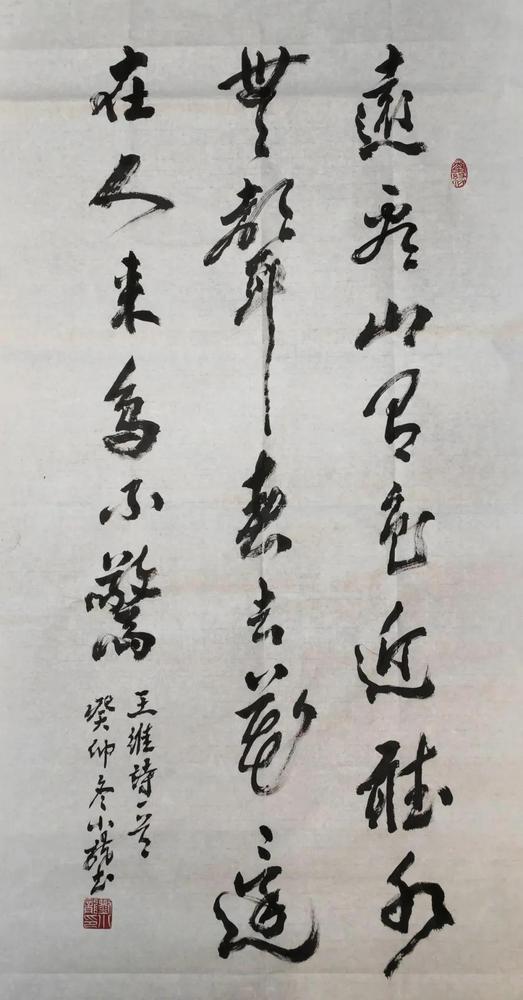 遠看山有色近聽水
無聲春去花還
在人來鳥不驚
王維詩一首
癸卯冬小龍書